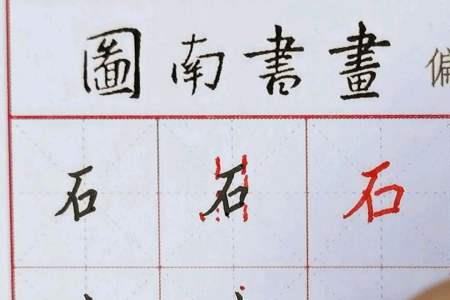 圖南書畫
石 石 石